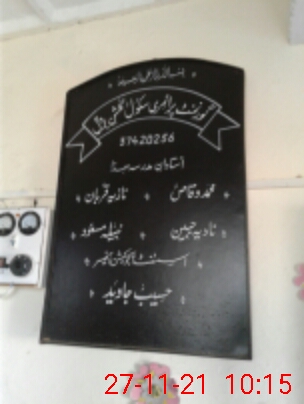 بسم اللہ الرحمن الرحیم
گورنمنٹ پرائمری سکول گلشن
37420256
اساتذان مدرسہ ہذا
محمد وقاص * نازیہ قربان
نادیہ جبین * نبیلہ مسعود
اسسٹنٹ ایجوکیشن آفیسر
حسیب جاوید
27-11-21 10:15